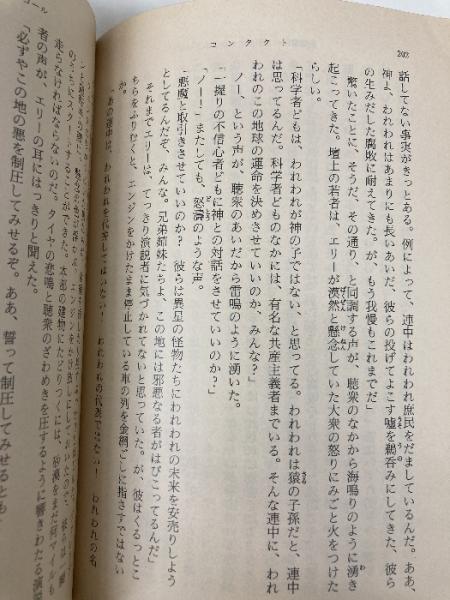 コール
コンタクト
202
話してない事実がきっとある。例によって、連中はわれわれ庶民をだましているんだ。ああ、
神よ、われわれはあまりにも長いあいだ、彼らの投げてよこす嘘を鵜呑みにしてきた、彼ら
の生みだした腐敗に耐えてきた。が、もう我慢もこれまでだ」
驚いたことに、そうだ、その通り、と同調する声が、聴衆のなかから海鳴りのように湧き
起こってきた。壇上の若者は、エリーが漠然と懸念していた大衆の怒りにみごと火をつけた
らしい。
「科学者どもは、われわれが神の子ではない、と思ってる。われわれは猿の子孫だと、連中
は思ってるんだ。科学者どものなかには、有名な共産主義者までいる。そんな連中に、われ
われのこの地球の運命を決めさせていいのか、みんな？」
ノー、という声が、聴衆のあいだから雷鳴のように湧いた。
「一握りの不信心者どもに神との対話をさせていいのか？」
「ノー！」またしても、怒濤のような声。
「悪魔と取引きさせていいのか？　彼らは異星の怪物たちにわれわれの未来を安売りしよう
としてるんだぞ、みんな。兄弟姉妹たちよ、この地には邪悪なる者がはびこってるんだ」
それまでエリーは、てっきり演説者に気づかれてないと思っていた。が、彼はくるっとこ
ちらをふり向くと、エンジンをかけたまま停止している車の列を金網ごしに指さすではない
か。
「あの連中は、われわれの代表ではない！　われわれの名
のうちにスタートすることができた。本部の建物にたどりつくには、砂漠をまだ何マイルも
走らなければならないのだ。タイヤの悲鳴と聴衆のざわめきを圧するように響きわたる演説
者の声が、エリーの耳にはっきりと聞えた。
「必ずやこの地の悪を制圧してみせるぞ。ああ、誓って制圧してみせるとも